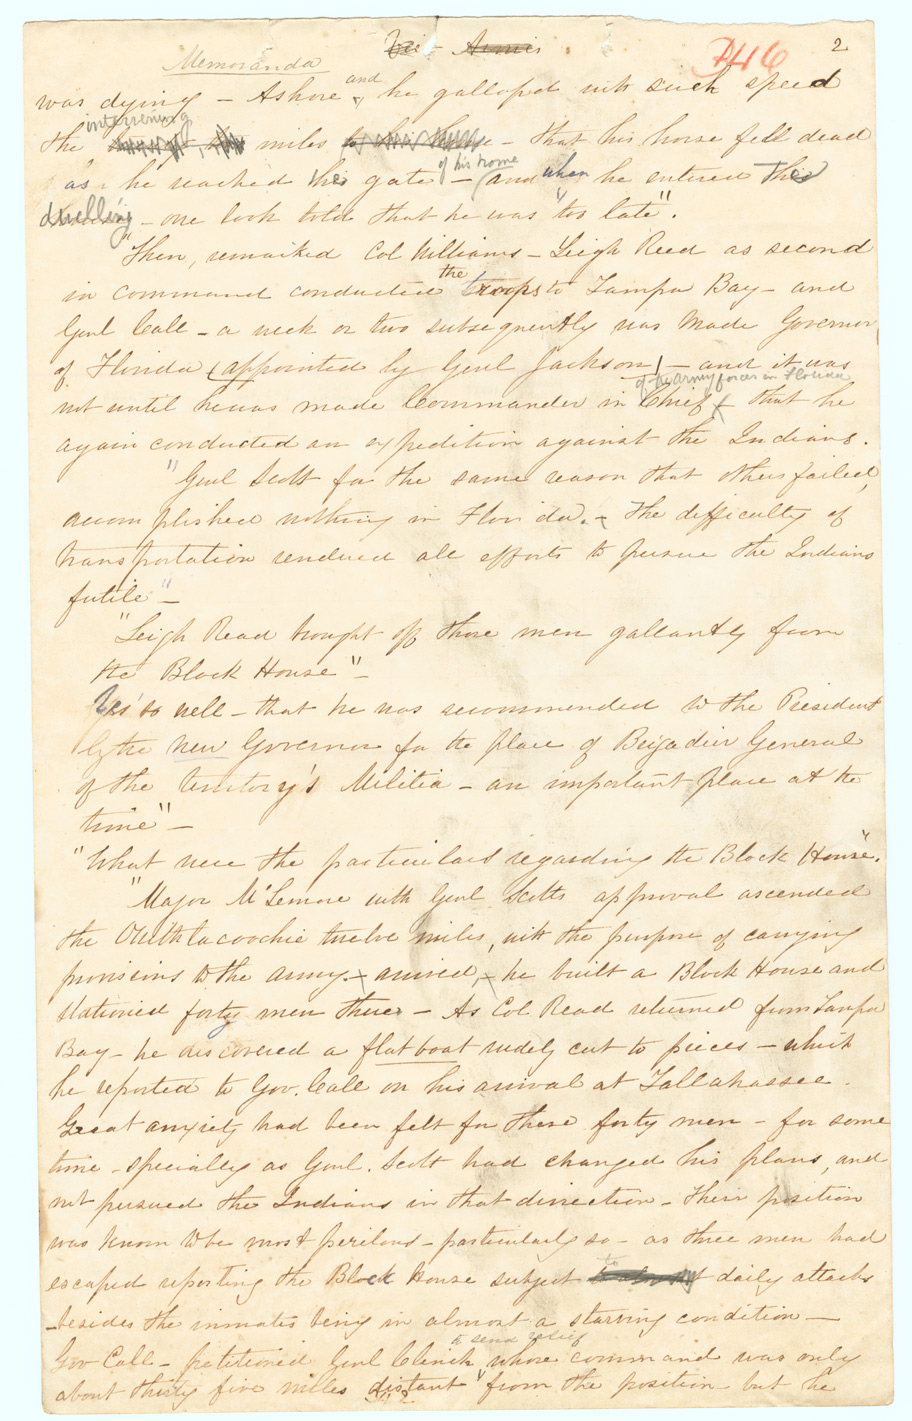 Memoranda
2
was dying – Ashore and he gallopd with such speed
the intervening miles – that his horse fell dead
as he reached the gate of his home – and when he entered the
dwelling – one look told that he was "too late".
"Then, remarked Col Williams – Leigh Reed as second
in command conducted the troops to Tampa Bay – and
Genl Call – a week or two subsequently was made Governor
of Florida (appointed by Genl Jackson) – and it was
not until he was made Commander in Chief of the army forces in Florida – that he
again conducted an expedition against the Indians.
"Genl Scott for the same reason that others failed,
accomplished nothing in Florida. – The difficulty of
transportation rendered all efforts to pursue the Indians
futile" –
"Leigh Read brought off those men gallantly from
the Block House" –
Yes so well – that he was recommended to the President
by the new Governor for the place of Brigadier General
of the territory's Militia – an important place at the
time" –
"What were the particulars regarding the Block House".
"Major McLemore with Genl Scotts approval ascended
the Outhlacoochie twelve miles, with the purpose of carrying
provisions to the army – arrived, – he built a Block House and
stationed forty men there – As Col Read returned from Tampa
Bay – he discovered a flat boat rudely cut to pieces – which
he reported to Gov. Call on his arrival at Tallahassee.
Great anxiety had been felt for these forty men – for some
time – specially as Genl. Scott had changed his plans, and
not pursued the Indians in that direction – Their position
was known to be most perilous – particularly so – as three men had
escaped reporting the Block House subject to daily attacks
– besides the inmates being in almost a starving condition –
Gov Call – petitioned Genl Clinch to send relief whose command was only
about thirty five miles distant from the position – but he